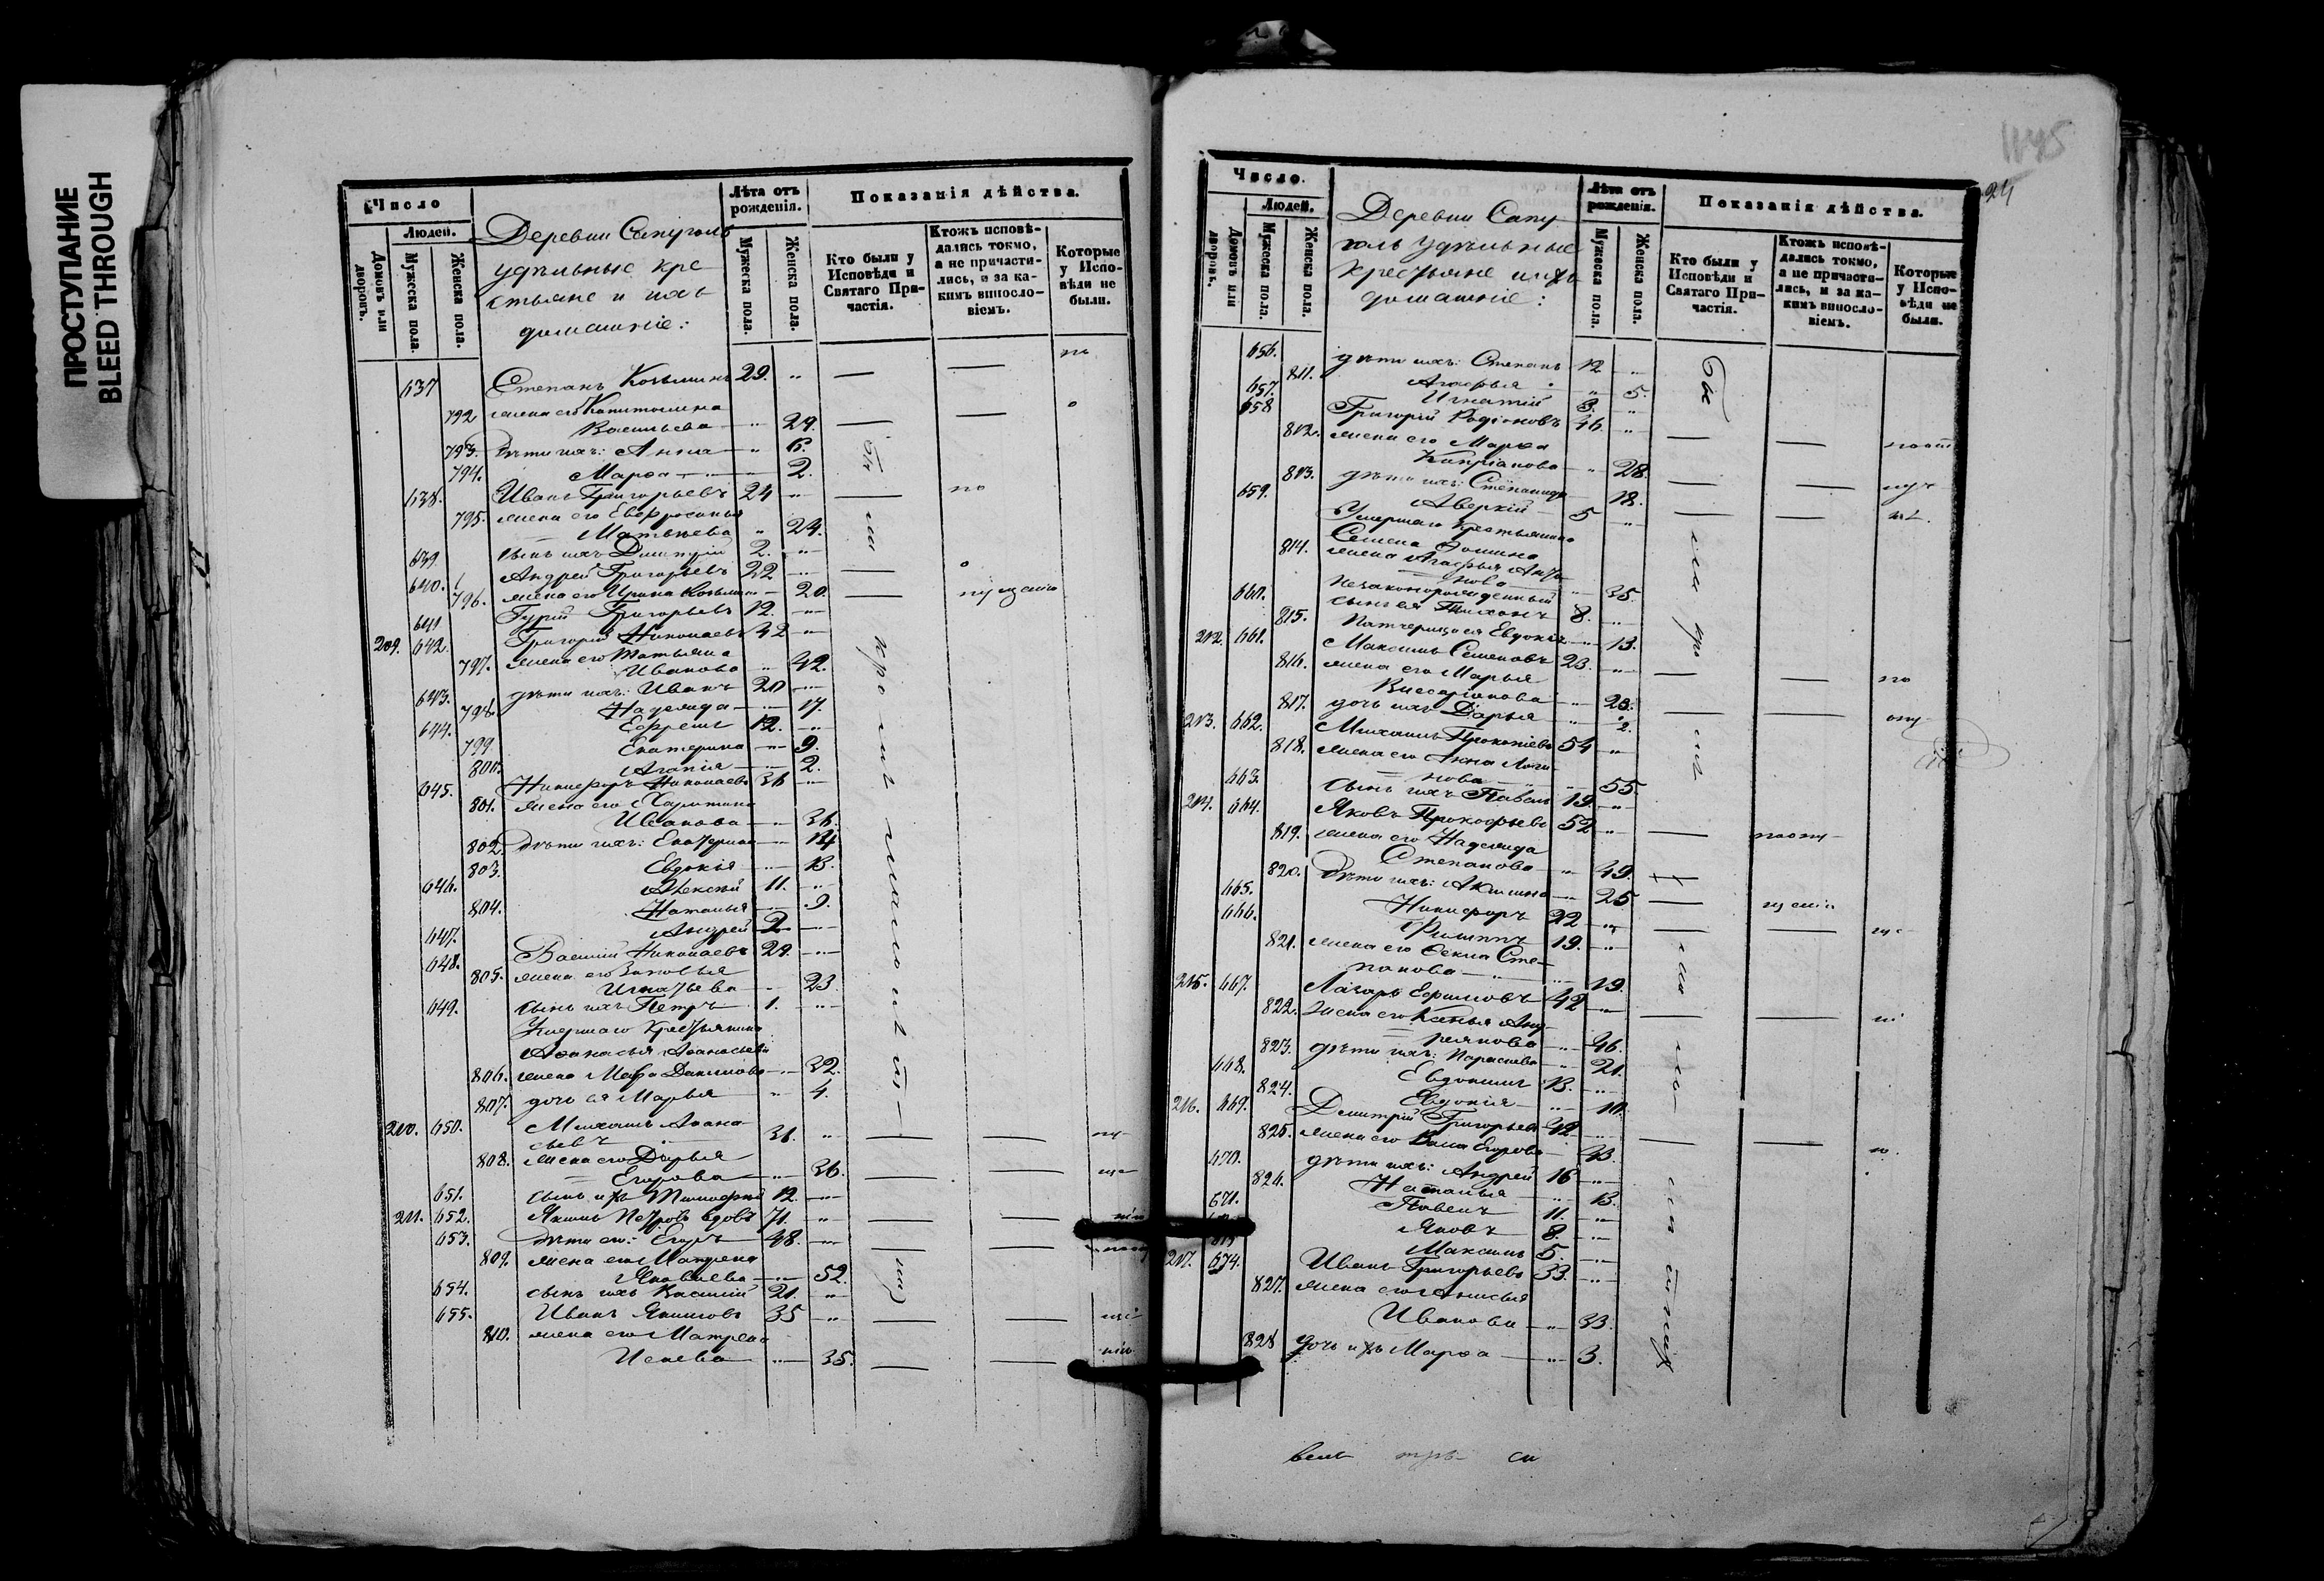 ПРОСТУПАНИЕ
BLEED THROUGH
Число
Людей.
Домовъ или дворовъ.
Мужеска пола.
Женска пола.
Деревни
удѣльные кре
стьяне и ихъ
домашніе:
Лѣта отъ рожденія.
Мужеска пола.
Женска пола.
Показанія дѣйства.
Кто были у Исповѣди и Святаго Причастія.
Ктожъ исповѣдались токмо, а не причастились, и за какимъ винословіемъ.
Которые у Исповѣди не были.
637 Степанъ Козьминъ 29. "
792 жена его Капитолина
Васильева " 29.
793. дѣти ихъ: Анна " 6.
794. Марѳа " 2.
638. Иванъ Григорьевъ 24 "
795. жена его Евфросинья
Матвѣева " 24.
639. сынъ ихъ Димитрій 2. "
640. Андрей Григорьевъ 22 "
796. жена его Ирина Козьмина 20.
641 Гурій Григорьевъ 12. "
209. 642. Григорій Николаевъ 42 "
797. жена его Татьяна
Иванова " 42.
643. дѣти ихъ: Иванъ 20 "
798. Надежда " 17
644. Ефремъ 12. "
799 Екатерина " 9.
800. Агапія " 2.
645. Никифоръ Николаевъ 36 "
801. жена его Харитина
Иванова " 36.
802. дѣти ихъ: Екатерина " 14
803. Евдокія " 13.
646. Алексѣй 11. "
804. Наталья " 9.
647. Андрей 2 "
648. Василій Николаевъ 29. "
805. жена его Зиновья
Игнатьева 23
649. сынъ ихъ Петръ 1. "
Умершаго крестьянина
Аѳанасья Аѳанасьева
806. жена Мавра Данилова " 32.
807. дочь ея Марья " 4.
210. 650. Михаилъ Аѳана
сьевъ 36. "
808. жена его Дарья
Егорова " 36.
651. сынъ ихъ Тимофей 12. "
211. 652. Якимъ Петровъ вдовъ 71. "
653. дѣти его: Егоръ 48. "
809. жена его Матрена
Яковлева " 52.
654. сынъ ихъ Василій 21. "
655. Иванъ Якимовъ 35 "
810. жена его Матрена
Исаева " 35.
24
Число.
Людей.
Домовъ или дворовъ.
Мужеска пола.
Женска пола.
Деревни
удѣльные
крестьяне и ихъ
домашніе:
Лѣта отъ рожденія.
Мужеска пола.
Женска пола.
Показанія дѣйства.
Кто были у Исповѣди и Святаго Причастія.
Ктожъ исповѣдались токмо, а не причастились, и за какимъ винословіемъ.
Которые у Исповѣди не были.
656. дѣти ихъ: Степанъ 12 "
811. Агафья " 5.
657. Игнатій 3. "
658 Григорій Родіоновъ 46. "
812. жена его Марѳа
Кипріанова " 28.
813. дѣти ихъ: Степанида 18.
659. Аверкій 5 "
Умершаго крестьянина
Семена Ѳомина
814. жена Агафья Анто
нова " 35.
660. незаконорожденный
сынъ ея Тихонъ 8. "
815. Падчерица ея Евдокія " 13.
212. 661. Максимъ Семеновъ 23. "
816. жена его Марья
Виссаріонова " 23.
817. дочь ихъ Дарья " 2.
213. 662. Михаилъ Прокопіевъ 54 "
818. жена его Анна Логи
нова " 55
663. сынъ ихъ Павелъ 19. "
214. 664. Яковъ Прокофьевъ 52 "
819. жена его Надежда
Степанова " 49.
820. дѣти ихъ: Акилина " 25
665. Никифоръ 22 "
666. Филиппъ 19. "
821. жена его Ѳекла Сте
панова " 19.
215. 667. Лазарь Ефимовъ 42 "
822. Жена его Ксенья Анд
реянова " 46.
823. дѣти ихъ: Параскева " 21.
668. Евдокимъ 13. "
824. Евдокія " 10.
216. 669. Димитрій Григорьевъ 42 "
825. жена его Васса Егорова 43.
670. дѣти ихъ: Андрей 16 "
826. Наталья " 13.
671. Павелъ 11. "
Яковъ 8. "
Максимъ 5. "
217. 674. Иванъ Григорьевъ 33. "
827. жена его Анисья
Иванова " 33.
828 дочь ихъ Марѳа " 3.